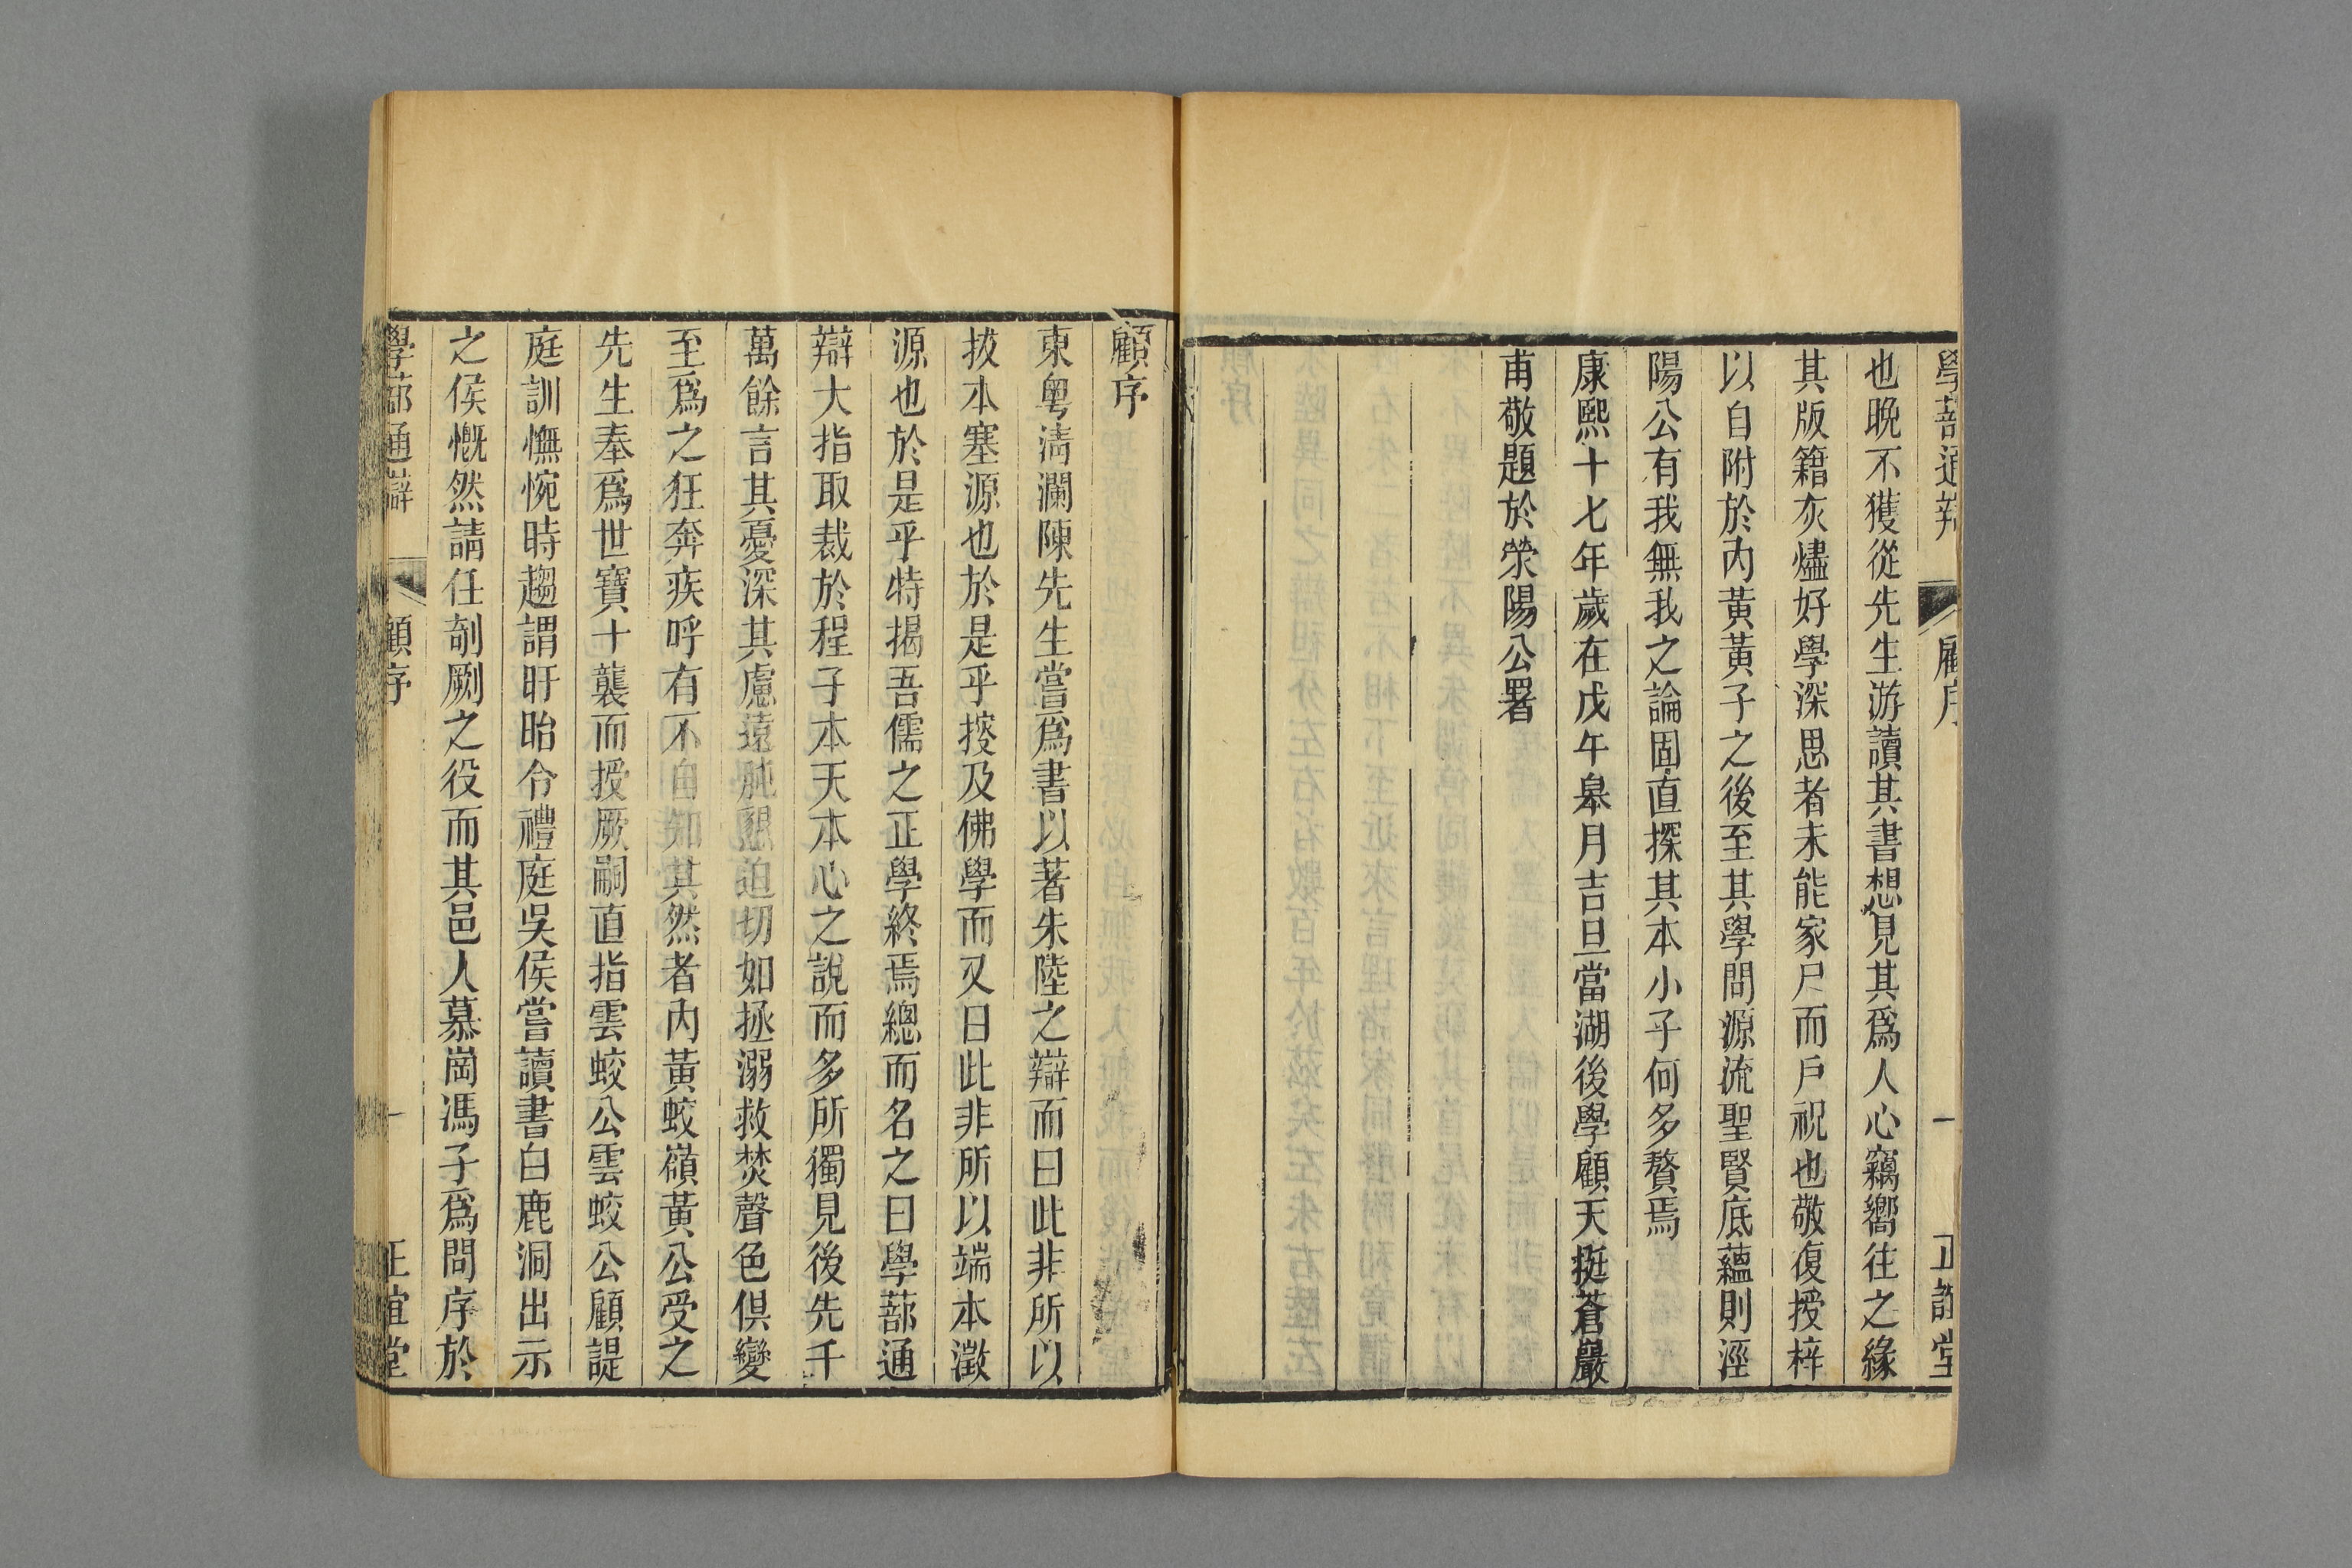 學蔀通辯 顧序 一 正誼堂
也晚不獲從先生游讀其書想見其爲人心竊嚮往之緣
其版籍灰燼好學深思者未能家尸而戶祝也敬復授梓
以自附於內黃黃子之後至其學問源流聖賢底蘊則涇
陽公有我無我之論固直探其本小子何多贅焉
康熙十七年歲在戊午皋月吉旦當湖後學顧天挺蒼巖
甫敬題於滎陽公署
顧序
東粵淸瀾陳先生嘗爲書以著朱陸之辯而曰此非所以
拔本塞源也於是乎搜及佛學而又曰此非所以端本澂
源也於是乎特揭吾儒之正學終焉總而名之曰學蔀通
辯大指取裁於程子本天本心之說而多所獨見後先千
萬餘言其憂深其慮遠肫懇迫切如拯溺救焚聲色俱變
至爲之狂奔疾呼有不自知其然者內黃蛟嶺黃公受之
先生奉爲世寶十襲而授厥嗣直指雲蛟公雲蛟公顧諟
庭訓憮惋時趨謂盱眙令禮庭吳侯嘗讀書白鹿洞出示
之侯慨然請任剞劂之役而其邑人慕崗馮子爲問序於
學蔀通辯 顧序 一 正誼堂